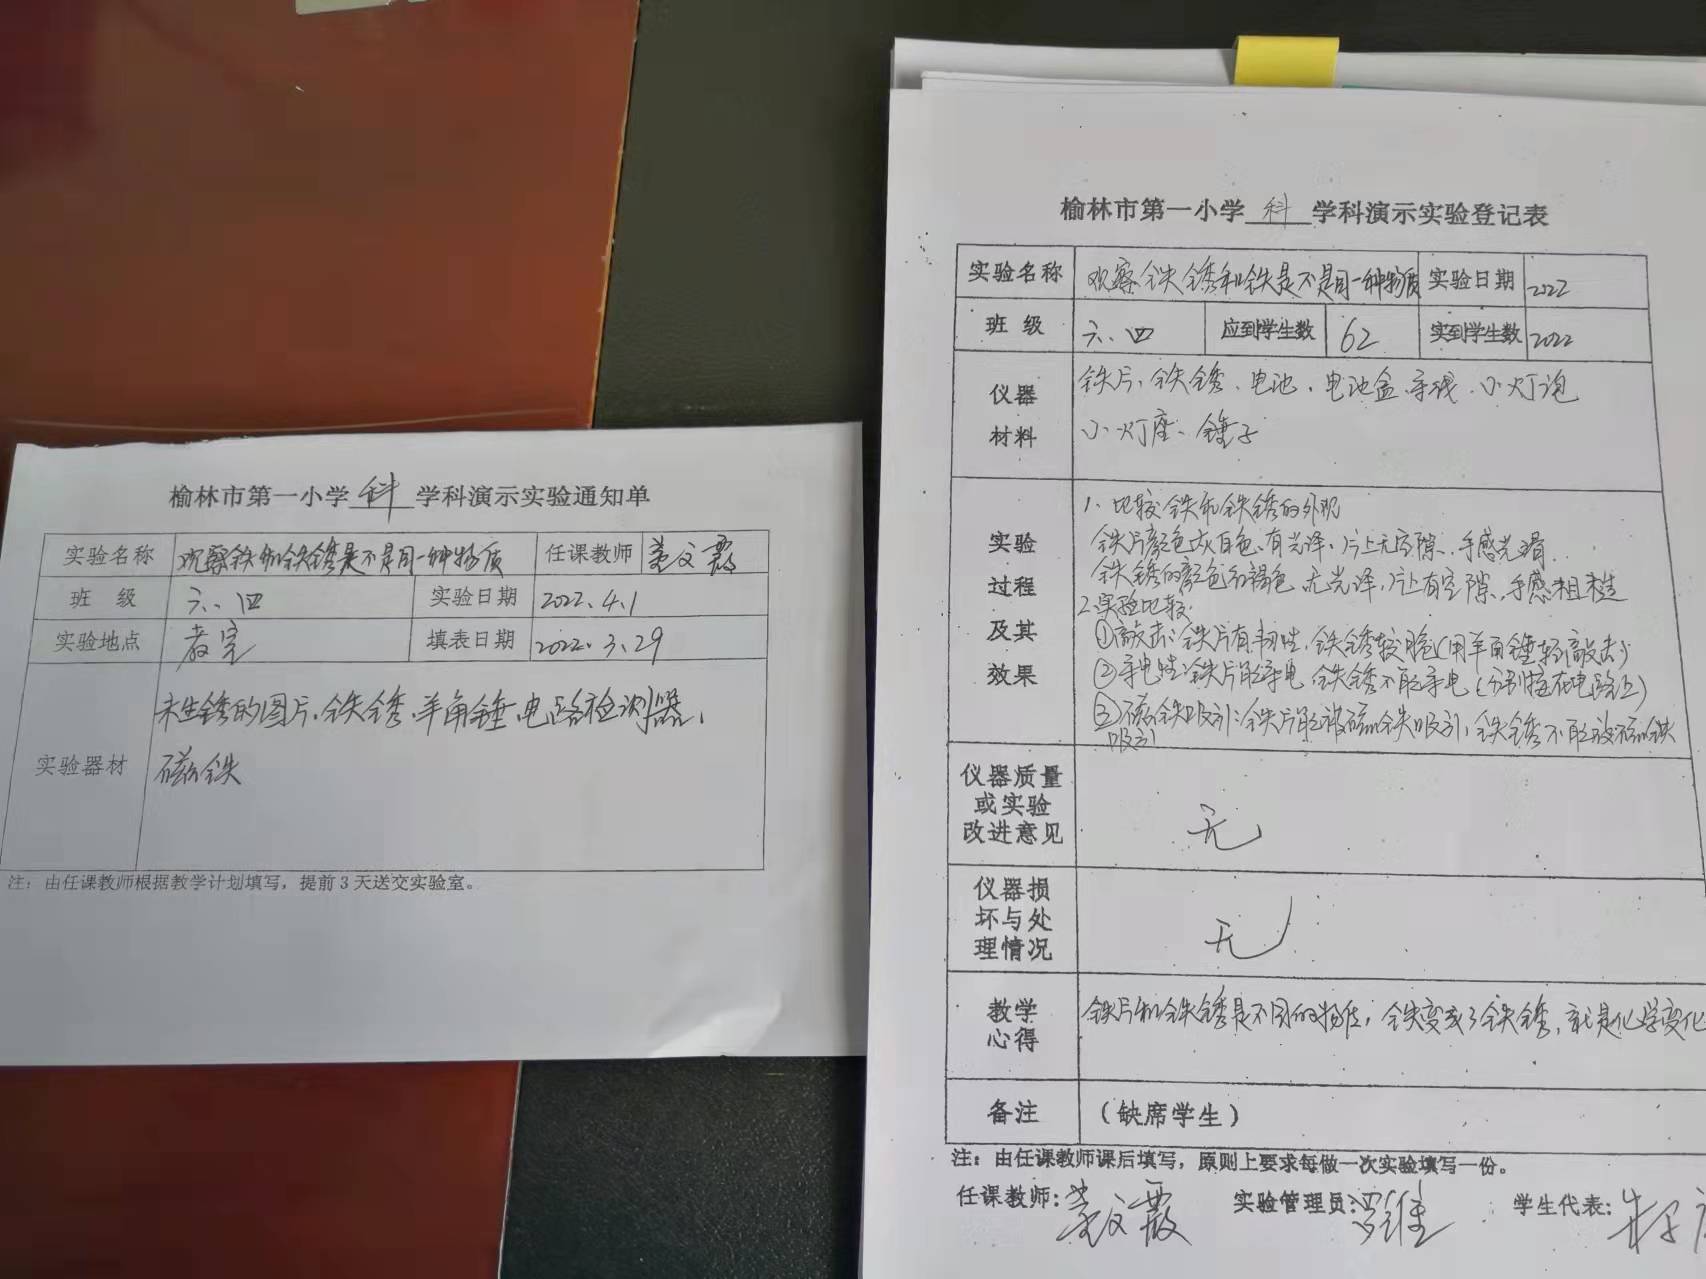 榆林市第一小学 科 学科演示实验通知单
实验名称 观察铁和铁锈是不是同一种物质 任课教师 姜文霞
班 级 六.四 实验日期 2022.4.1
实验地点 教室 填表日期 2022.3.29
实验器材 未生锈的图片、铁锈、羊角锤、电路检测器、
磁铁
注：由任课教师根据教学计划填写，提前3天送交实验室。
榆林市第一小学 科 学科演示实验登记表
实验名称 观察铁锈和铁是不是同一种物质 实验日期 2022
班 级 六.四 应到学生数 62 实到学生数 2022
仪器材料 铁片、铁锈、电池、电池盒、导线、小灯泡
小灯座、锤子
实验过程及其效果
1、比较铁和铁锈的外观
铁片颜色灰白色、有光泽、片上无空隙、手感光滑.
铁锈的颜色红褐色、无光泽、片上有空隙、手感粗糙
2、实验比较
①敲击：铁片有韧性，铁锈较脆(用羊角锤轻敲击)
②导电性：铁片能导电 铁锈不能导电(分别接在电路上)
③磁铁吸引：铁片能被磁铁吸引，铁锈不能被磁铁
吸引
仪器质量或实验改进意见 无
仪器损坏与处理情况 无
教学心得 铁片和铁锈是不同的物质，铁变成了铁锈，就是化学变化
备注 （缺席学生）
注：由任课教师课后填写，原则上要求每做一次实验填写一份。
任课教师: 姜文霞 实验管理员: 罗维 学生代表: